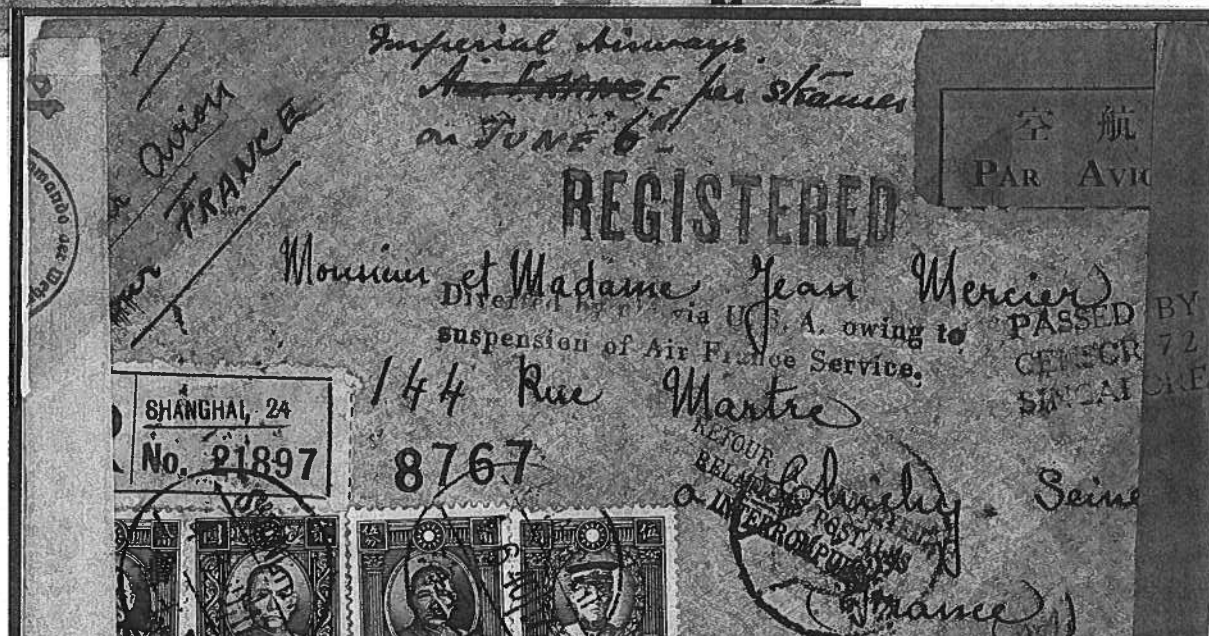 Imperial Airways
Air FRANCE per steamer
on JUNE 6
Avion
FRANCE
REGISTERED
空 航
PAR AVIO
Monsieur et Madame Jean Mercier
Diverted by via U.S.A. owing to
suspension of Air France Service.
PASSED BY
CENSOR 72
SINGAPORE
144 Rue Martre
SHANGHAI, 24
No. 21897
8767
RETOUR
RELATIONS POSTALES
INTERROMPUES
à Clichy. Seine
(France)